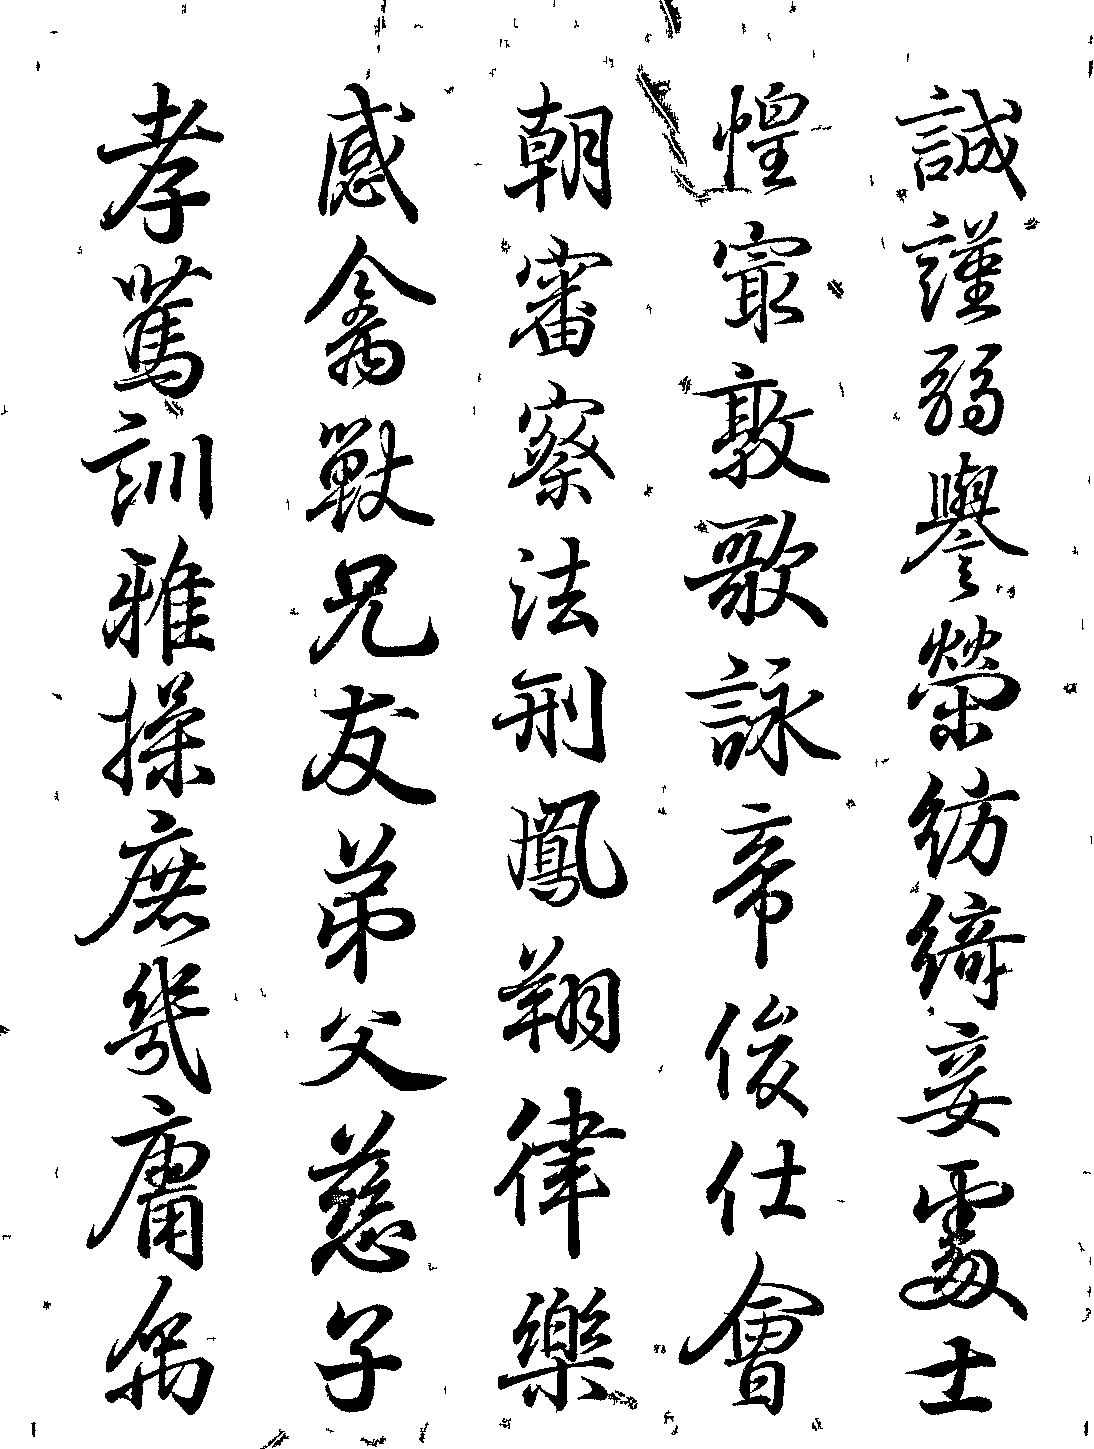 誠謹弱譽榮紡綺妾處士
煌㝡敦歌詠帝俊仕會
朝審察法刑鳳翔律樂
感禽獸兄友弟父慈子
孝篤訓雅操庶幾庸